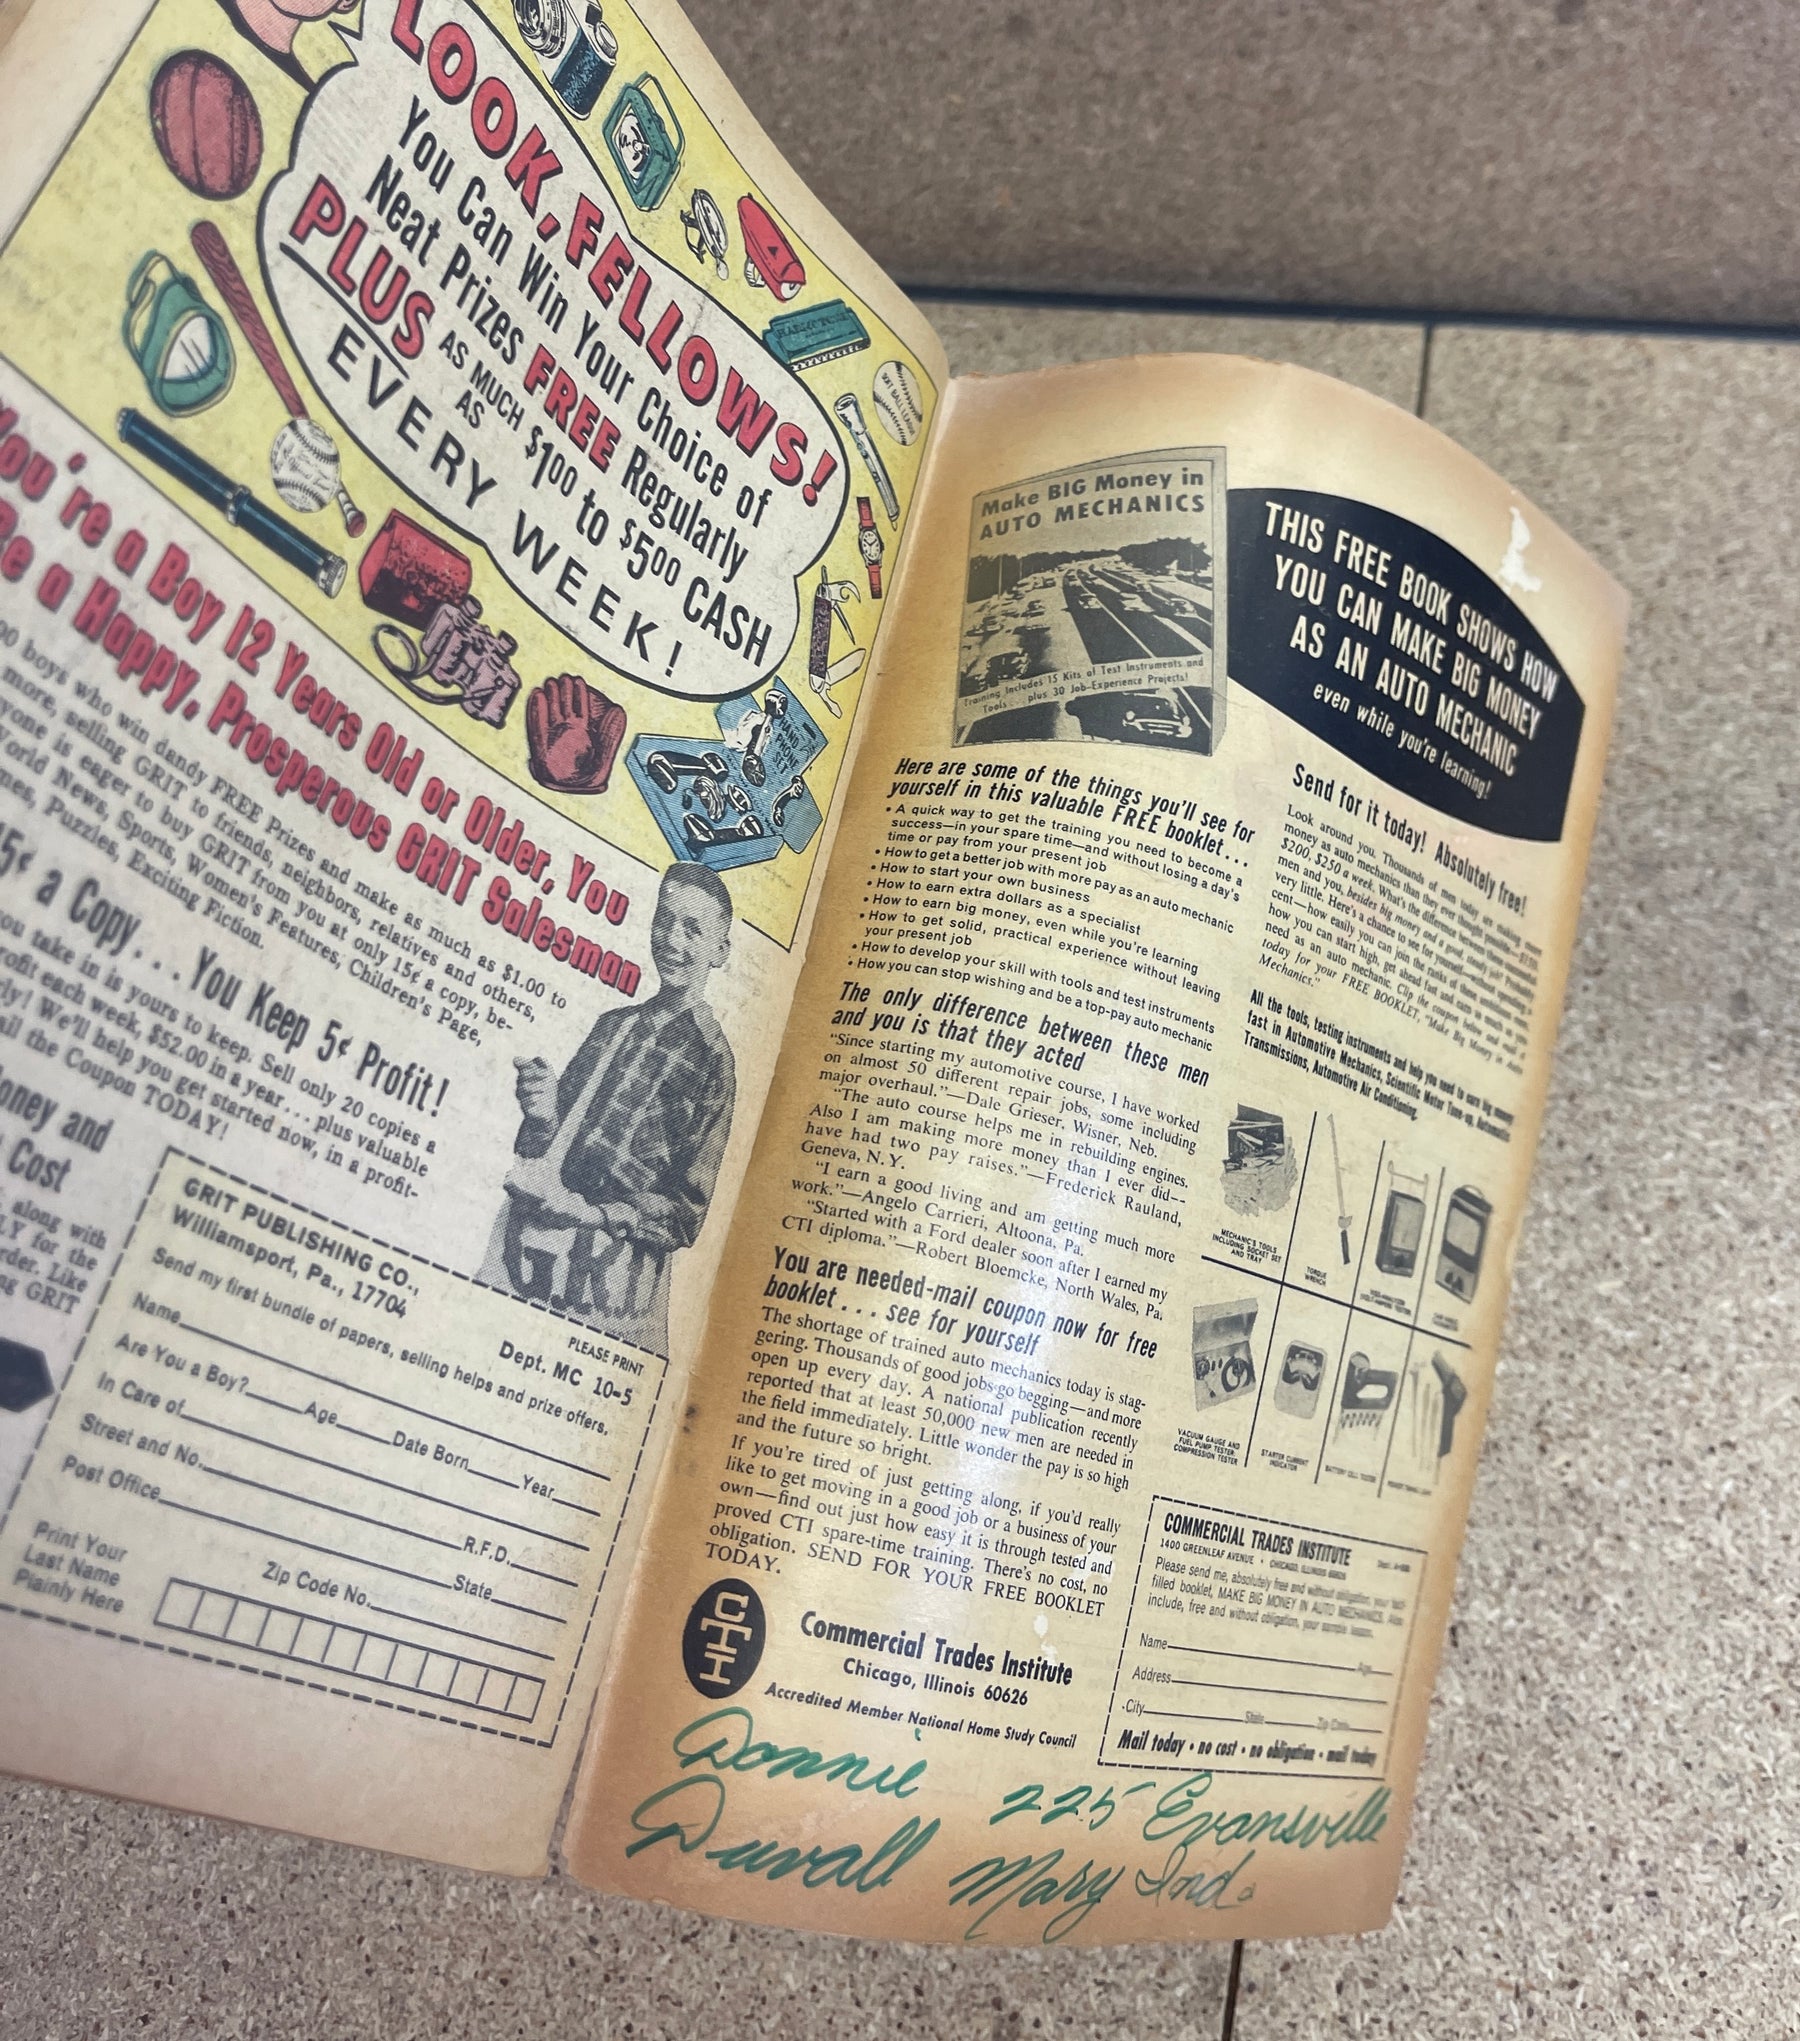 LOOK, FELLOWS!
You Can Win Your Choice of
Neat Prizes FREE Regularly
PLUS AS MUCH AS $1.00 to $5.00 CASH
EVERY WEEK!
HARMONICA
SOFT BALL LEAGUE
HAND PHONE SET
You're a Boy 12 Years Old or Older, You
Be a Happy, Prosperous GRIT Salesman
00 boys who win dandy FREE Prizes and make as much as $1.00 to
more, selling GRIT to friends, neighbors, relatives and others,
yone is eager to buy GRIT from you at only 15¢ a copy, be-
World News, Sports, Women's Features, Children's Page,
mes, Puzzles, Exciting Fiction.
15¢ a Copy... You Keep 5¢ Profit!
ou take in is yours to keep. Sell only 20 copies a
rofit each week, $52.00 in a year... plus valuable
rly! We'll help you get started now, in a profit-
ail the Coupon TODAY!
oney and
Cost
along with
LY for the
rder. Like
ng GRIT
GRIT
GRIT PUBLISHING CO.,
Williamsport, Pa., 17704
PLEASE PRINT
Dept. MC 10-5
Send my first bundle of papers, selling helps and prize offers.
Name
Are You a Boy? Age Date Born Year
In Care of
Street and No. R.F.D.
Post Office State
Zip Code No.
Print Your
Last Name
Plainly Here
Make BIG Money in
AUTO MECHANICS
Training Includes 15 Kits of Test Instruments and
Tools... plus 30 Job-Experience Projects!
THIS FREE BOOK SHOWS HOW
YOU CAN MAKE BIG MONEY
AS AN AUTO MECHANIC
even while you're learning!
Here are some of the things you'll see for
yourself in this valuable FREE booklet...
• A quick way to get the training you need to become a
success—in your spare time—and without losing a day's
time or pay from your present job
• How to get a better job with more pay as an auto mechanic
• How to start your own business
• How to earn extra dollars as a specialist
• How to earn big money, even while you're learning
• How to get solid, practical experience without leaving
your present job
• How to develop your skill with tools and test instruments
• How you can stop wishing and be a top-pay auto mechanic
The only difference between these men
and you is that they acted
"Since starting my automotive course, I have worked
on almost 50 different repair jobs, some including
major overhaul."—Dale Grieser, Wisner, Neb.
"The auto course helps me in rebuilding engines.
Also I am making more money than I ever did--
have had two pay raises."—Frederick Rauland,
Geneva, N.Y.
"I earn a good living and am getting much more
work."—Angelo Carrieri, Altoona, Pa.
"Started with a Ford dealer soon after I earned my
CTI diploma."—Robert Bloemcke, North Wales, Pa.
You are needed-mail coupon now for free
booklet... see for yourself
The shortage of trained auto mechanics today is stag-
gering. Thousands of good jobs go begging—and more
open up every day. A national publication recently
reported that at least 50,000 new men are needed in
the field immediately. Little wonder the pay is so high
and the future so bright.
If you're tired of just getting along, if you'd really
like to get moving in a good job or a business of your
own—find out just how easy it is through tested and
proved CTI spare-time training. There's no cost, no
obligation. SEND FOR YOUR FREE BOOKLET
TODAY.
CTI
Commercial Trades Institute
Chicago, Illinois 60626
Accredited Member National Home Study Council
Send for it today! Absolutely free!
Look around you. Thousands of men today are making more
money as auto mechanics than they ever thought possible—$150,
$200, $250 a week. What's the difference between these contented
men and you, besides big money and a good, steady job? Probably
very little. Here's a chance to see for yourself—without spending a
cent—how easily you can join the ranks of these
how you can start high, get ahead fast and earn as much as you
need as an auto mechanic. Clip the coupon below and mail it
today for your FREE BOOKLET, "Make Big Money in Auto
Mechanics."
All the tools, testing instruments and help you need to earn big money
fast in Automotive Mechanics, Scientific Motor Tune-up, Automatic
Transmissions, Automotive Air Conditioning.
MECHANIC'S TOOLS
INCLUDING SOCKET SET
AND TRAY
TORQUE
WRENCH
VACUUM GAUGE AND
FUEL PUMP TESTER
COMPRESSION TESTER
STARTER CURRENT
INDICATOR
BATTERY CELL TESTER
COMMERCIAL TRADES INSTITUTE
1400 GREENLEAF AVENUE • CHICAGO, ILLINOIS 60626
Please send me, absolutely free and without obligation, your fact-
filled booklet, MAKE BIG MONEY IN AUTO MECHANICS. Also
include, free and without obligation, your sample lesson.
Name Age
Address
City State Zip Code
Mail today • no cost • no obligation • mail today
Donnie 225 Evansville
Duvall Mary Ind.